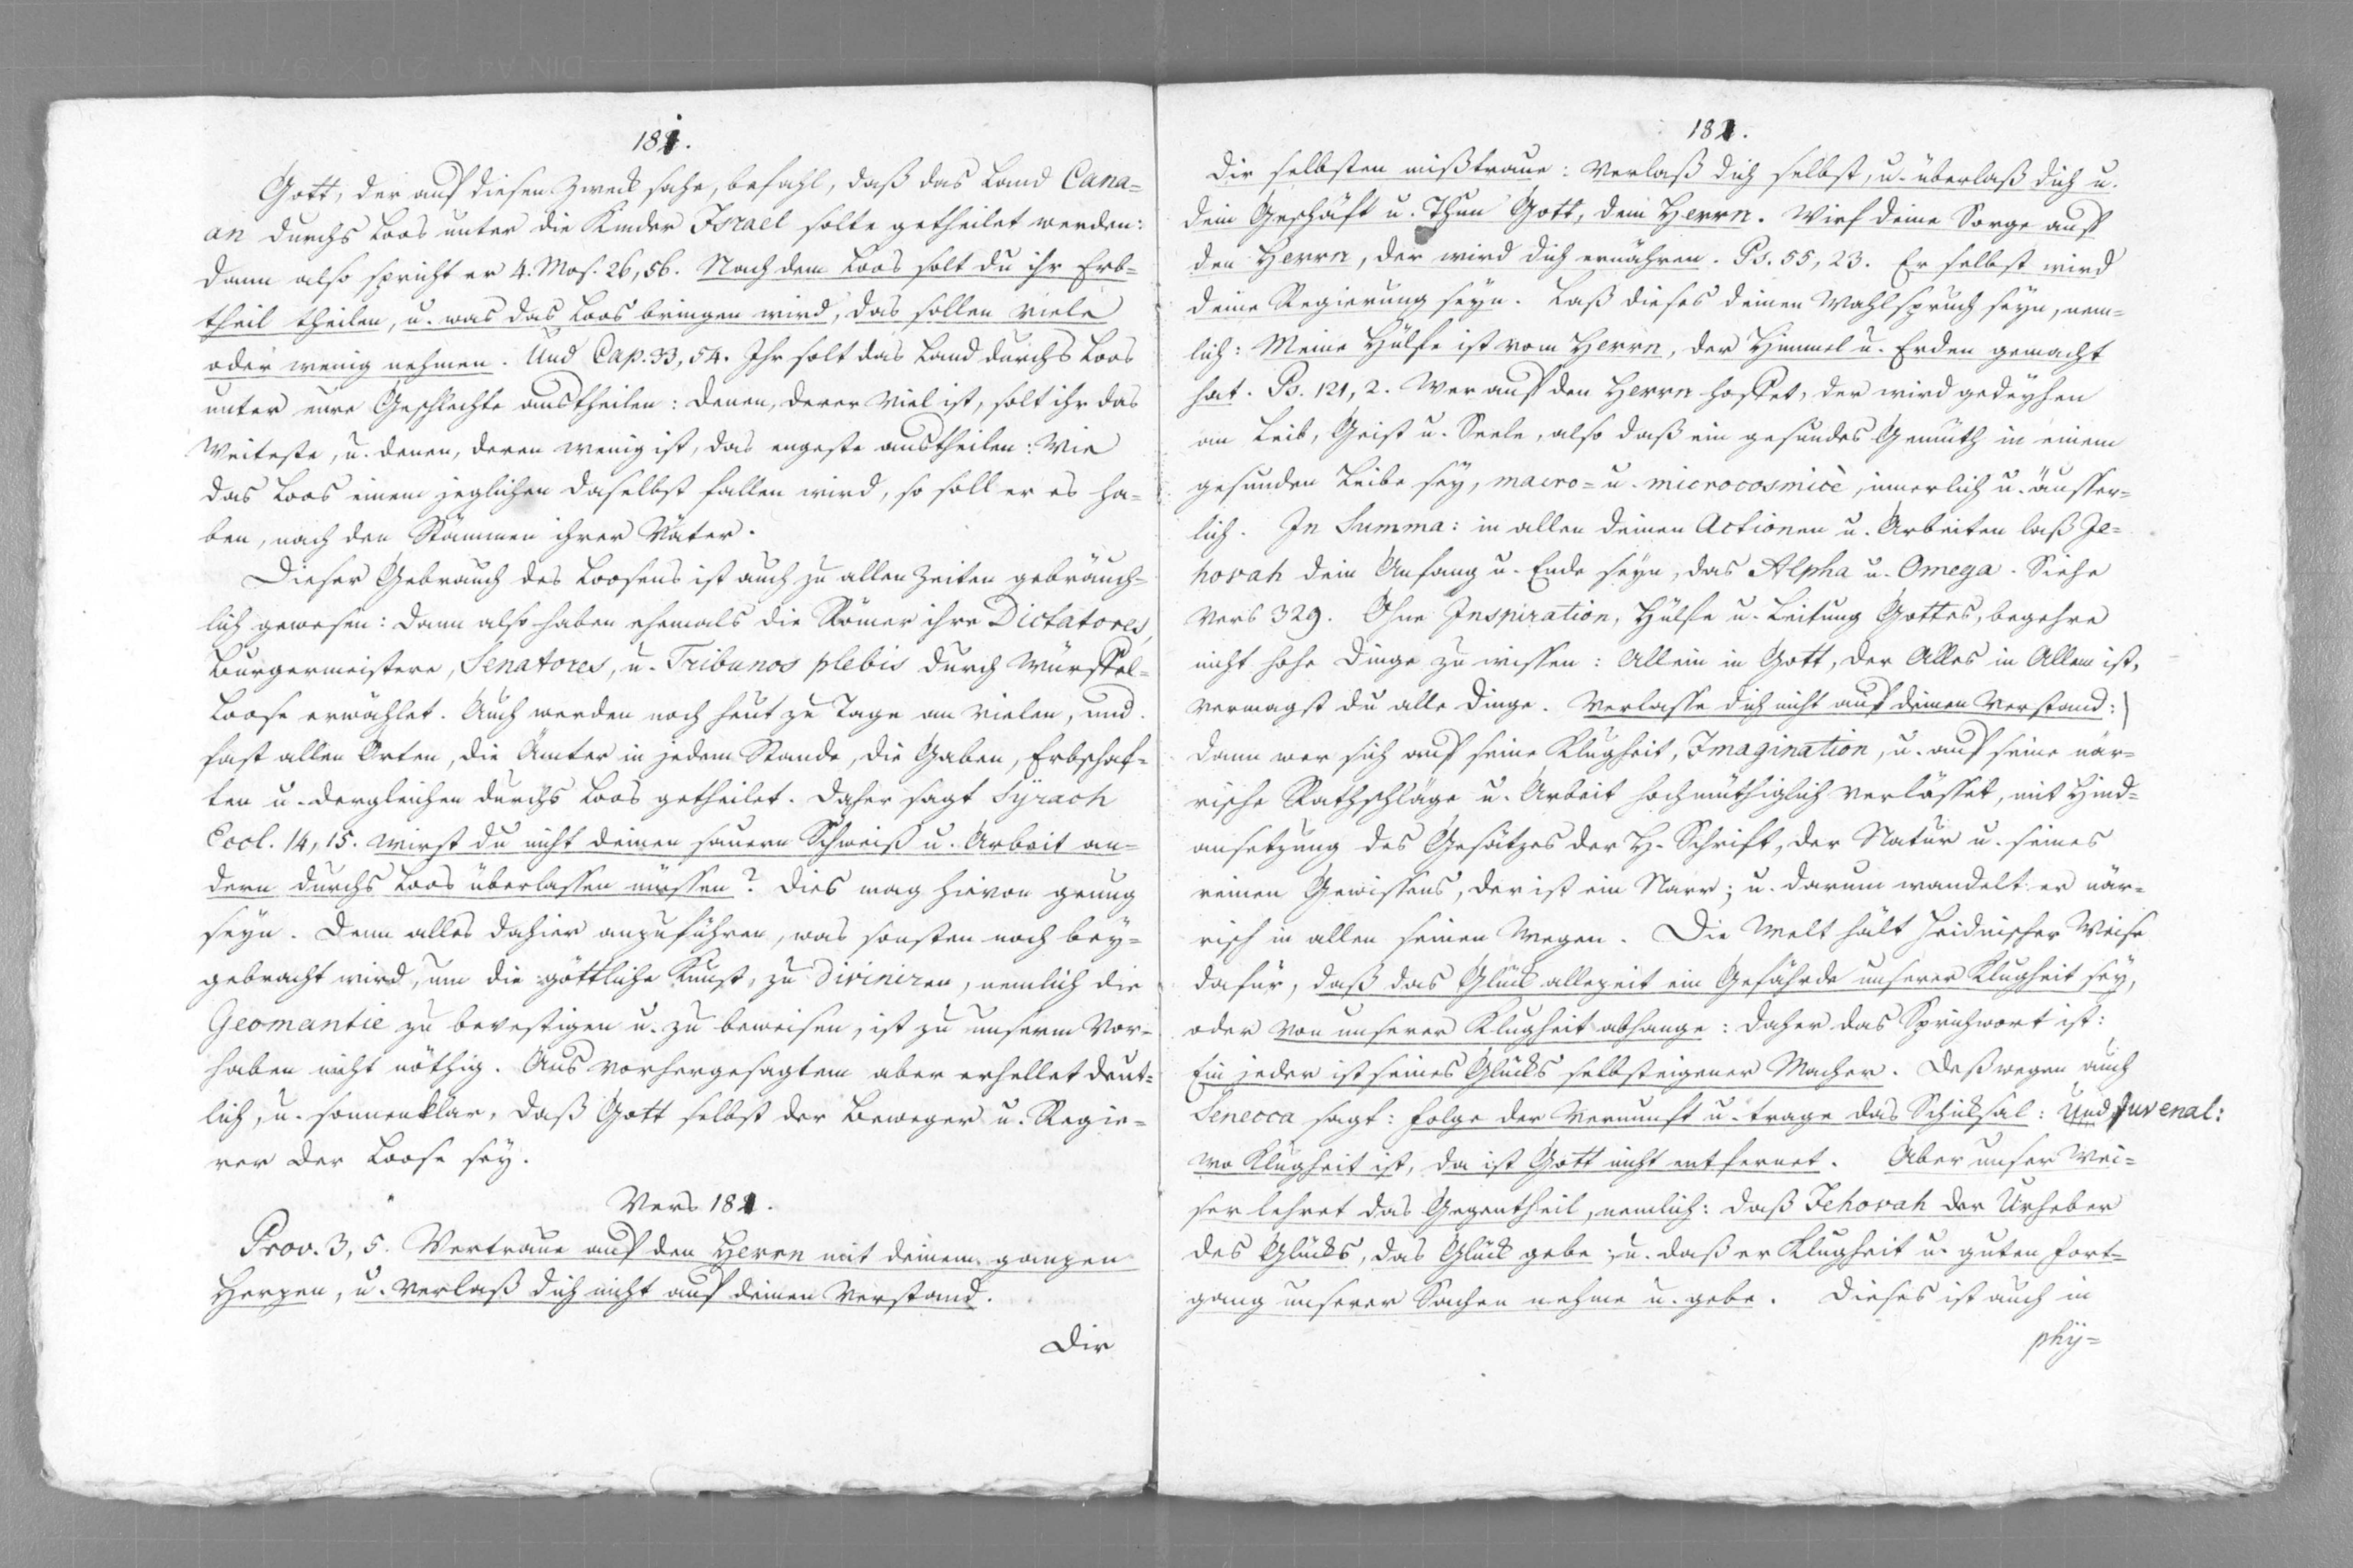 181.
Gott, der auf diesen Zweck sahe, befahl, daß das Land Cana=
an durchs Loos unter die Kinder Israel solte getheilet werden:
dann also spricht er 4. Mos. 26, 56. Nach dem Loos solt du ihr Erb=
theil theilen, u. was das Loos bringen wird, das sollen viele
oder wenig nehmen. Und Cap. 33, 54. Ihr solt das Land durchs Loos
unter eure Geschlechte austheilen: denen, derer viel ist, solt ihr das
Weiteste, u. denen, deren wenig ist, das engeste austheilen: Wie
das Loos einem jeglichen daselbst fallen wird, so soll er es ha=
ben, nach den Stämmen ihrer Väter.
Dieser Gebrauch des Loosens ist auch zu allen Zeiten gebräuch=
lich gewesen: dann also haben ehemals die Römer ihre Dictatores,
Burgermeistere, Senatores, u. Tribunos plebis durch Würffel=
Loose erwählet. Auch werden noch heut zu Tage an vielen, und
fast allen Orten, die Ämter in jedem Stande, die Gaben, Erbschaf=
ten u. dergleichen durchs Loos getheilet. Daher sagt Syrach
Eccl. 14, 15. wirst du nicht deinen sauern Schweiß u. Arbeit an=
dern durchs Loos überlassen müssen? Dies mag hievon genug
seyn. Denn alles dahier anzuführen, was sonsten noch bey=
gebracht wird, um die göttliche Kunst, zu diviniren, nemlich die
Geomantie zu bevestigen u. zu beweisen, ist zu unserm Vor=
haben nicht nöthig. Aus vorhergesagtem aber erhellet deut=
lich, u. sonnenklar, daß Gott selbst der Beweger u. Regie=
rer der Loose sey.
Vers 181.
Prov. 3, 5. Vertraue auf den Herrn mit deinem ganzen
Herzen, u. verlaß dich nicht auf deinen Verstand.
Dir
182.
Dir selbsten mißtraue: Verlaß dich selbst, u. überlaß dich u.
dein Geschäft u. Thun Gott, dem Herrn. Wirf deine Sorge auf
den Herrn, der wird dich ernähren. Ps. 55, 23. Er selbst wird
deine Regierung seyn. Laß dieses deinen Wahlspruch seyn, nem=
lich: Meine Hülfe ist vom Herrn, der Himmel u. Erden gemacht
hat. Ps. 121, 2. Wer auf den Herrn hoffet, der wird gedeyhen
an Leib, Geist u. Seele, also daß ein gesundes Gemüth in einem
gesunden Leibe sey, macro= u. microcosmicè, innerlich u. äusser=
lich. In Summa: in allen deinen Actionen u. Arbeiten laß Je=
hovah dein Anfang u. Ende seyn, das Alpha u. Omega. Siehe
Vers 329. Ohne Inspiration, Hülfe u. Leitung Gottes, begehre
nicht hohe Dinge zu wissen: Allein in Gott, der Alles in Allem ist,
vermagst du alle Dinge. Verlasse dich nicht auf deinen Verstand:)
dann wer sich auf seine Klugheit, Imagination, u. auf seine när=
rische Rathschläge u. Arbeit hochmüthiglich verlässet, mit Hind=
ansetzung des Gesätzes der H. Schrift, der Natur u. seines
reinen Gewissens, der ist ein Narr; u. darum wandelt er när=
risch in allen seinen Wegen. Die Welt hält heidnischer Weise
dafür, daß das Glück allezeit ein Gefährde unserer Klugheit sey,
oder von unserer Klugheit abhange: daher das Sprichwort ist:
Ein jeder ist seines Glücks selbsteigener Macher. Deßwegen auch
Senecca sagt: folge der Vernunft u. trage das Schicksal: Und Juvenal:
wo Klugheit ist, da ist Gott nicht entfernet. Aber unser Wei=
ser lehret das Gegentheil, nemlich: daß Jehovah der Urheber
des Glücks, das Glück gebe; u. daß er Klugheit u. guten Fort=
gang unserer Sachen nehme u. gebe. Dieses ist auch in
phy=